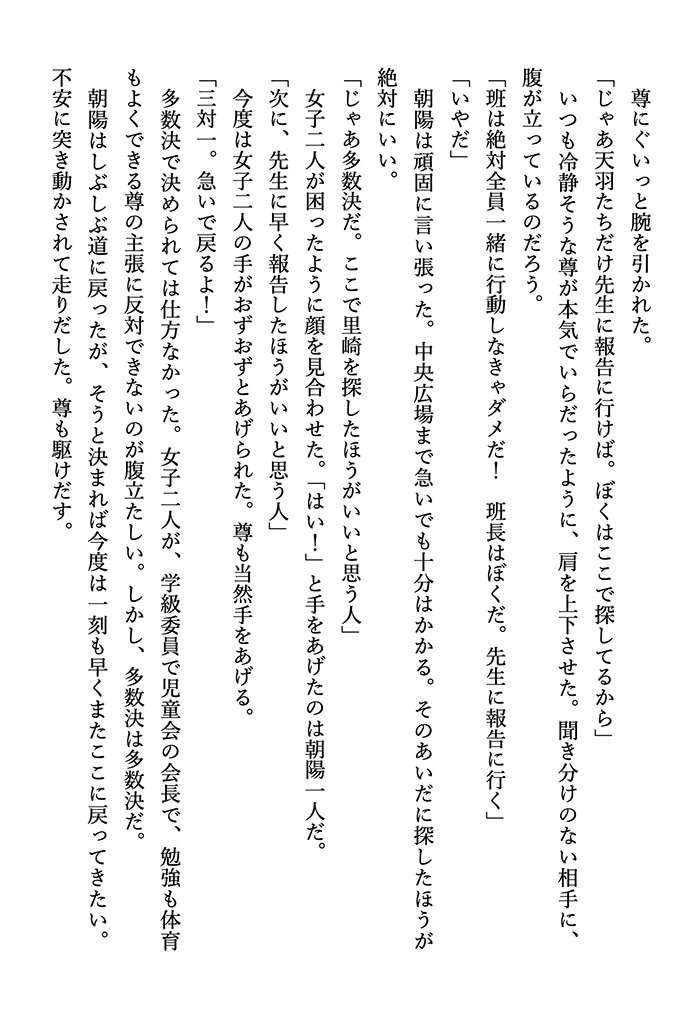 尊にぐいっと腕を引かれた。
「じゃあ天羽たちだけ先生に報告に行けば。ぼくはここで探してるから」
いつも冷静そうな尊が本気でいらだったように、肩を上下させた。聞き分けのない相手に、
腹が立っているのだろう。
「班は絶対全員一緒に行動しなきゃダメだ！　班長はぼくだ。先生に報告に行く」
「いやだ」
朝陽は頑固に言い張った。中央広場まで急いでも十分はかかる。そのあいだに探したほうが
絶対にいい。
「じゃあ多数決だ。ここで里崎を探したほうがいいと思う人」
女子二人が困ったように顔を見合わせた。「はい！」と手をあげたのは朝陽一人だ。
「次に、先生に早く報告したほうがいいと思う人」
今度は女子二人の手がおずおずとあげられた。尊も当然手をあげる。
「三対一。急いで戻るよ！」
多数決で決められては仕方なかった。女子二人が、学級委員で児童会の会長で、勉強も体育
もよくできる尊の主張に反対できないのが腹立たしい。しかし、多数決は多数決だ。
朝陽はしぶしぶ道に戻ったが、そうと決まれば今度は一刻も早くまたここに戻ってきたい。
不安に突き動かされて走りだした。尊も駆けだす。